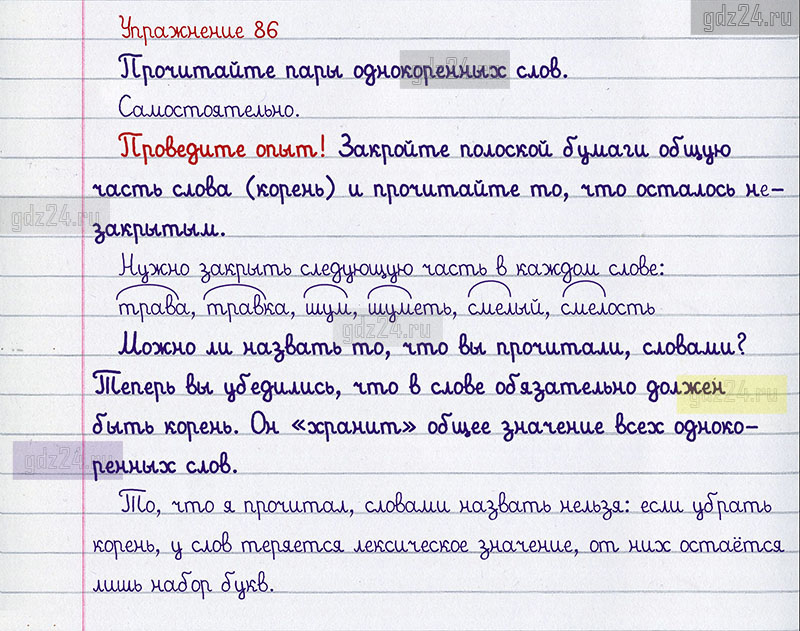 gdz24.ru
Упражнение 86
Прочитайте пары однокоренных слов.
gdz24.ru
Самостоятельно.
Проведите опыт! Закройте полоской бумаги общую
часть слова (корень) и прочитайте то, что осталось не-
gdz24.ru
закрытым.
Нужно закрыть следующую часть в каждом слове:
трава, травка, шум, шуметь, смелый, смелость
gdz24.ru
Можно ли назвать то, что вы прочитали, словами?
Теперь вы убедились, что в слове обязательно должен
gdz24.ru
быть корень. Он «хранит» общее значение всех одноко-
gdz24.ru
ренных слов.
То, что я прочитал, словами назвать нельзя: если убрать
корень, у слов теряется лексическое значение, от них остаётся
лишь набор букв.